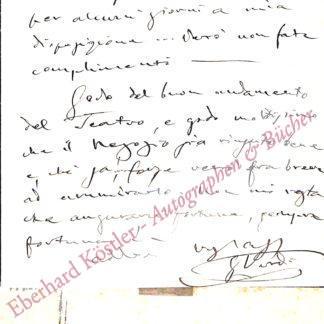 per alcuni giorni a mia
disposizione ... Però non fate
complimenti
Godo del buon andamento
del Teatro, e godo moltissimo
che il Negozio già
e, che forse verrò fra breve
ad ammirarlo. Non mi resta
che augurarvi fortuna, sempre
fortuna
G Verdi
Eberhard Köstler - Autographen & Bücher